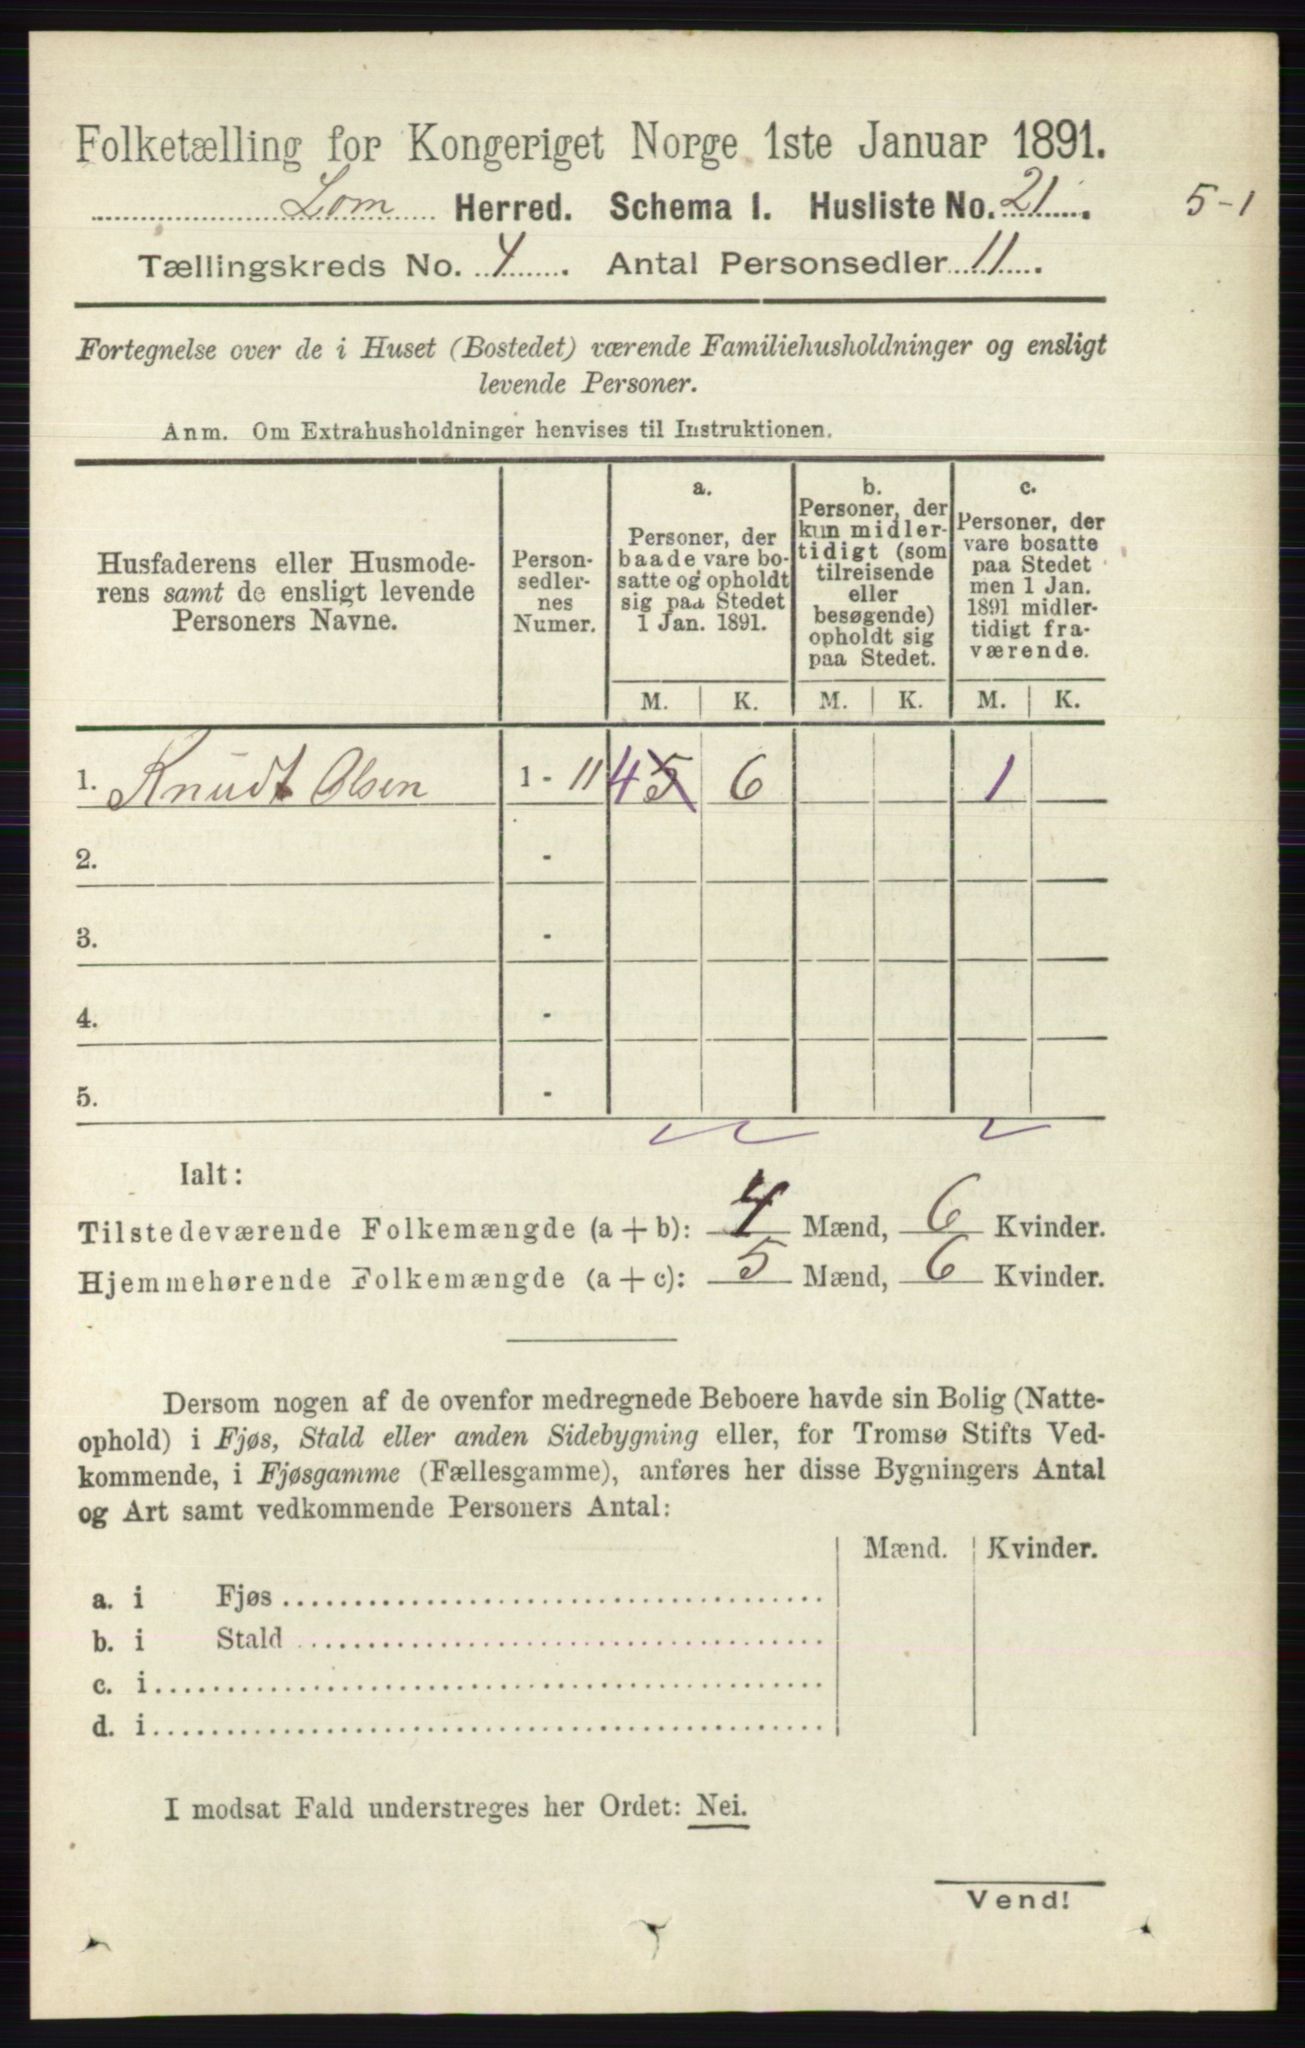 Folketælling for Kongeriget Norge 1ste Januar 1891.
Lom Herred. Schema I. Husliste No. 21.
5-1
Tællingskreds No. 4. Antal Personsedler 11.
Fortegnelse over de i Huset (Bostedet) værende Familiehusholdninger og ensligt
levende Personer.
Anm. Om Extrahusholdninger henvises til Instruktionen.
Husfaderens eller Husmode-
rens samt de ensligt levende
Personers Navne.
Person-
sedler-
nes
Numer.
a.
Personer, der
baade vare bo-
satte og opholdt
sig paa Stedet
1 Jan. 1891.
b.
Personer, der
kun midler-
tidigt (som
tilreisende
eller
besøgende)
opholdt sig
paa Stedet.
c.
Personer, der
vare bosatte
paa Stedet
men 1 Jan.
1891 midler-
tidigt fra-
værende.
M. K. M. K. M. K.
1. Knudt Olsen 1 - 11 4 5 6 1
2. -
3. -
4. -
5. -
Ialt:
Tilstedeværende Folkemængde (a + b): 4 Mænd, 6 Kvinder.
Hjemmehørende Folkemængde (a + c): 5 Mænd, 6 Kvinder.
Dersom nogen af de ovenfor medregnede Beboere havde sin Bolig (Natte-
ophold) i Fjøs, Stald eller anden Sidebygning eller, for Tromsø Stifts Ved-
kommende, i Fjøsgamme (Fællesgamme), anføres her disse Bygningers Antal
og Art samt vedkommende Personers Antal:
Mænd. Kvinder.
a. i Fjøs
b. i Stald
c. i
d. i
I modsat Fald understreges her Ordet: Nei.
Vend!